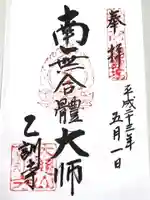 奉拝
平成二十三年
五月一日
南無合體大師
乙訓寺